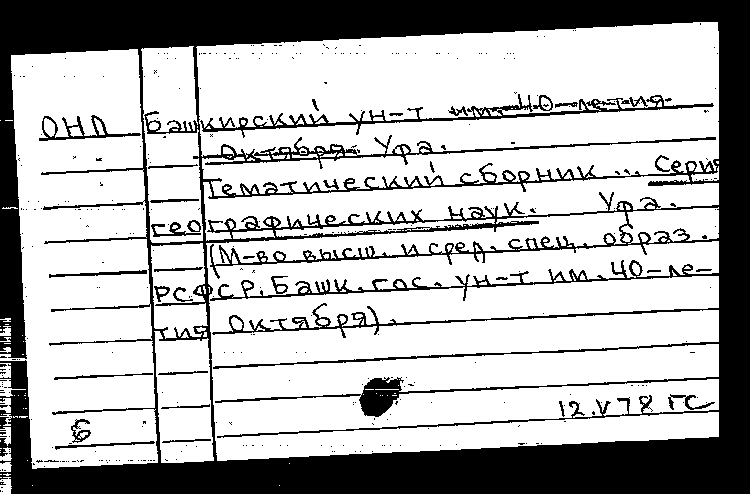 ОНП Башкирский ун-т им. 40-летия
Октября. Уфа.
Тематический сборник ... Серия
географических наук. Уфа.
(М-во высш. и сред. спец. образ.
РСФСР. Башк. гос. ун-т им. 40-ле-
тия Октября).
12.V 78 ГС
Б